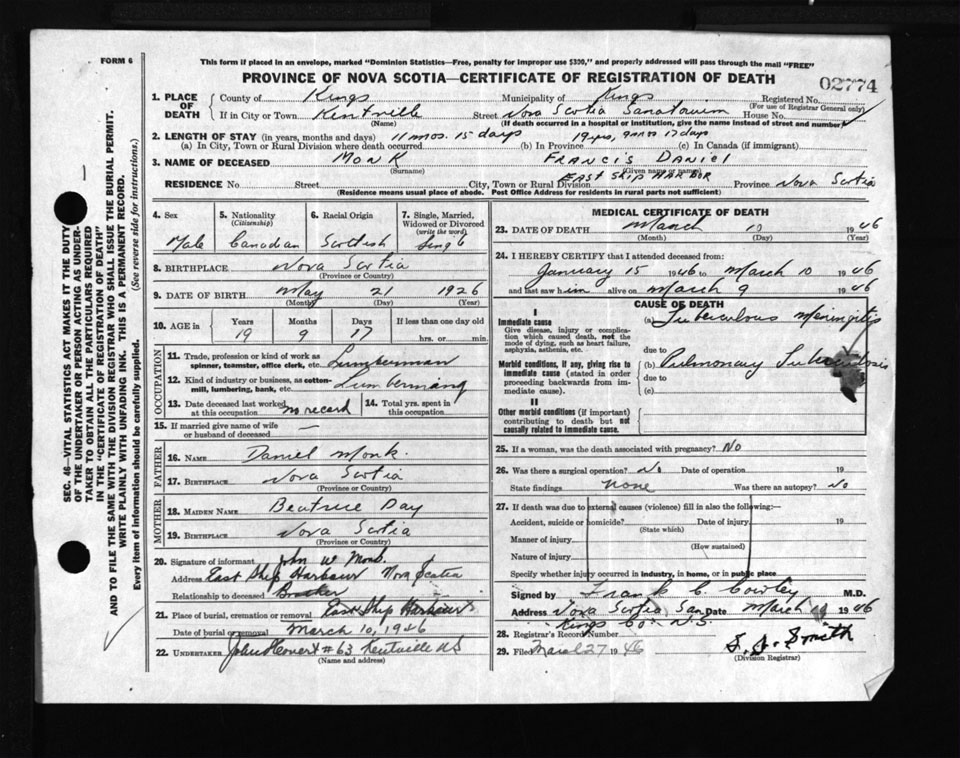 FORM 6
This form if placed in an envelope, marked "Dominion Statistics—Free, penalty for improper use $300," and properly addressed will pass through the mail "FREE"
PROVINCE OF NOVA SCOTIA—CERTIFICATE OF REGISTRATION OF DEATH
02774
1. PLACE OF DEATH { County of Kings Municipality of Kings Registered No.
(For use of Registrar General only)
If in City or Town Kentville Street Nova Scotia Sanatorium House No.
(Name) (If death occurred in a hospital or institution, give the name instead of street and number)
2. LENGTH OF STAY (in years, months and days) 11 mos. 15 days 19 yrs, 9 mos 17 days
(a) In City, Town or Rural Division where death occurred. (b) In Province (c) In Canada (if immigrant)
3. NAME OF DECEASED Monk Francis Daniel
(Surname) (Given name or names)
RESIDENCE No. Street City, Town or Rural Division East Ship Harbor Province Nova Scotia
(Residence means usual place of abode. Post Office Address for residents in rural parts not sufficient)
SEC. 46—VITAL STATISTICS ACT MAKES IT THE DUTY
OF THE UNDERTAKER OR PERSON ACTING AS UNDER-
TAKER TO OBTAIN ALL THE PARTICULARS REQUIRED
IN THE "CERTIFICATE OF REGISTRATION OF DEATH"
AND TO FILE THE SAME WITH THE DIVISION REGISTRAR WHO SHALL ISSUE THE BURIAL PERMIT.
WRITE PLAINLY WITH UNFADING INK. THIS IS A PERMANENT RECORD.
Every item of information should be carefully supplied. (See reverse side for instructions.)
4. Sex 5. Nationality (Citizenship) 6. Racial Origin 7. Single, Married, Widowed or Divorced (write the word)
Male Canadian Scottish Single
8. BIRTHPLACE Nova Scotia
(Province or Country)
9. DATE OF BIRTH May 21 1926
(Month) (Day) (Year)
10. AGE in Years Months Days If less than one day old
19 9 17 hrs. or min.
OCCUPATION
11. Trade, profession or kind of work as spinner, teamster, office clerk, etc. Lumberman
12. Kind of industry or business, as cotton-mill, lumbering, bank, etc. Lumbermang
13. Date deceased last worked at this occupation no record 14. Total yrs. spent in this occupation
15. If married give name of wife or husband of deceased —
FATHER
16. NAME Daniel Monk.
17. BIRTHPLACE Nova Scotia
(Province or Country)
MOTHER
18. MAIDEN NAME Beatrice Day
19. BIRTHPLACE Nova Scotia
(Province or Country)
20. Signature of informant John W Monk.
Address East Ship Harbour Nova Scotia
Relationship to deceased Brother
21. Place of burial, cremation or removal East Ship Harbour
Date of burial or removal March 10, 1946
22. UNDERTAKER #63 Kentville NS
(Name and address)
MEDICAL CERTIFICATE OF DEATH
23. DATE OF DEATH March 10 1946
(Month) (Day) (Year)
24. I HEREBY CERTIFY that I attended deceased from:
January 15 1946 to March 10 1946
and last saw him alive on March 9 1946
CAUSE OF DEATH
I
Immediate cause (a) Tuberculous Meningitis
Give disease, injury or complication which caused death, not the mode of dying, such as heart failure, asphyxia, asthenia, etc.
due to
Morbid conditions, if any, giving rise to immediate cause (stated in order proceeding backwards from immediate cause). (b) Pulmonary Tuberculosis
due to
(c)
II
Other morbid conditions (if important) contributing to death but not causally related to immediate cause.
25. If a woman, was the death associated with pregnancy? No
26. Was there a surgical operation? No Date of operation 19
State findings None Was there an autopsy? No
27. If death was due to external causes (violence) fill in also the following:—
Accident, suicide or homicide? Date of injury 19
(State which)
Manner of injury
(How sustained)
Nature of injury
Specify whether injury occurred in industry, in home, or in public place
Signed by Frank C. Cowley M.D.
Address Nova Scotia San Date March 1946
Kings Co. N.S.
28. Registrar's Record Number
29. Filed March 27 1946 S. J. Smith
(Division Registrar)